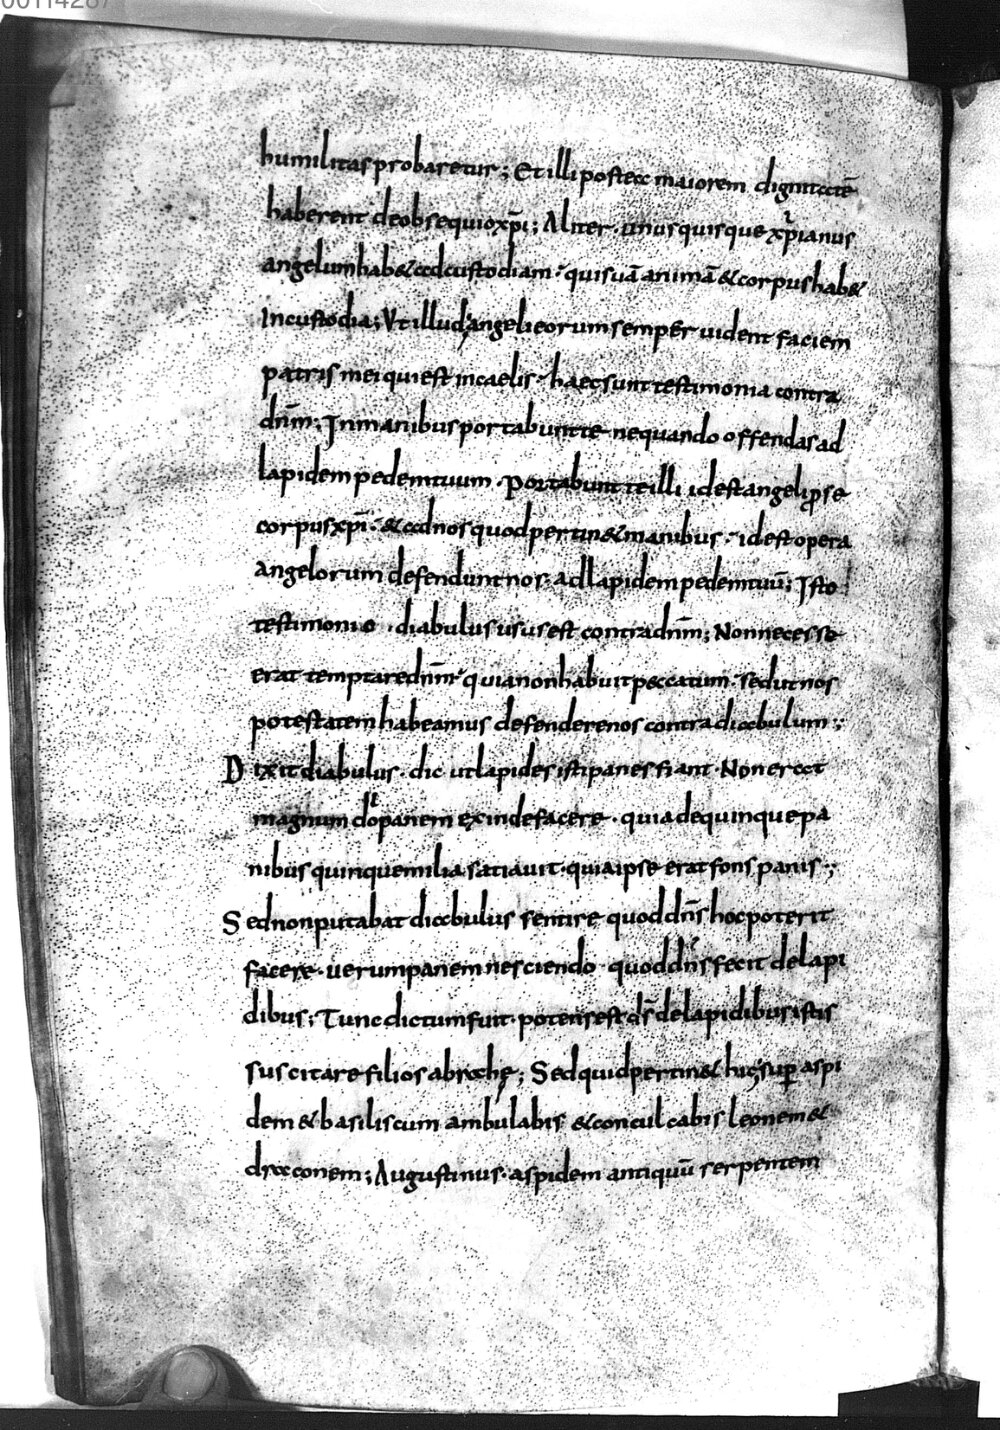 00114287
humilitas probaretur; Et illi postea maiorem dignitatē
haberent de obsequio xp̄i; Aliter · unusquisque xp̄ianus
angelum hab& ad custodiam · qui suā animā & corpus hab&
In custodia; Ut illud, angeli eorum semper uident faciem
patris mei qui est in caelis · haec sunt testimonia contra
dn̄m; In manibus portabunt te ne quando offendas ad
lapidem pedem tuum · portabunt te illi id est angeli ipse
corpus xp̄i · & ad nos quod pertin& manibus · id est opera
angelorum defendunt nos · ad lapidem pedem tuū; Isto
testimonio · diabulus usus est contra dn̄m; Non necesse
erat temptare dn̄m · quia non habuit peccatum · sed ut nos
potestatem habeamus defendere nos contra diabulum;
Dixit diabulus · dic ut lapides isti panes fiant · Non erat
magnum dō panem exinde facere · quia de quinque pa
nibus quinque milia satiauit · quia ipse erat fons panis;
Sed non putabat diabulus sentire quod dn̄s hoc poterit
facere · uerum panem nesciendo · quod dn̄s fecit de lapi
dibus; Tunc dictum fuit · potens est ds̄ de lapidibus istis
suscitare filios abrahę; Sed quid pertin& huic, sup̄ aspi
dem & basiliscum ambulabis & conculcabis leonem &
draconem; Augustinus · aspidem antiquū serpentem